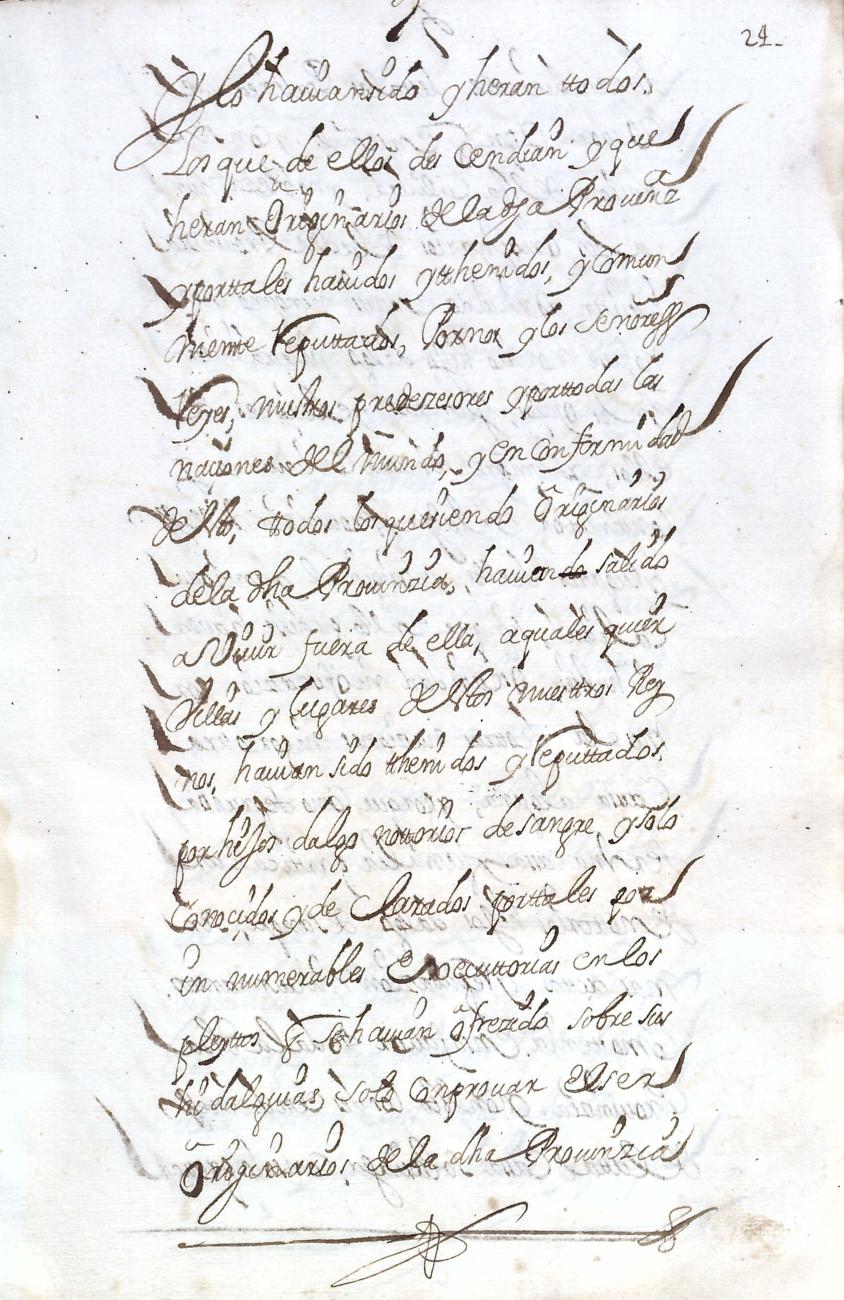 24.
Y lo hauian sido y heran ttodos
Los que de ellos des Cendian y que
heran Originarios de la dha Prouinza
y porttales hauidos y tthenidos, y Comun
mente Reputtados, Por nos y los señores
Reyes, nuestros predezesores y porttodas las
naciones del Mundo, y en Conformidad
de ello, ttodos los que siendo Originarios
de la dha Prouinzia, hauiendo salido
a Viuir fuera de ella, a quales quier
Villas y lugares de estos nuesttros Rey
nos, hauian sido tthenidos y Reputtados
por hijos dalgo nottorios de sangre, y solo
Conocidos y de Clarados porttales por
in numerables Executtorias en los
pleyttos q̃ se hauian ofrezido sobre sus
hidalguias, solo Con prouar el ser
Originarios de la dha Prouinzia